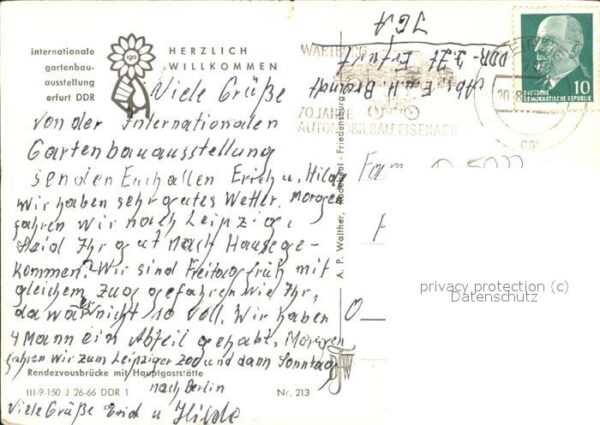 internationale
gartenbau-
ausstellung
erfurt DDR
iga
HERZLICH
WILLKOMMEN
Viele Grüße
von der Internationalen
Gartenbauausstellung
senden Euch allen Erich u. Hilde
Wir haben sehr gutes Wetter. Morgen
fahren wir nach Leipzig.
Seid Ihr gut nach Hause ge-
kommen? Wir sind Freitag früh mit
gleichem Zug gefahren wie Ihr,
da war es nicht so voll. Wir haben
4 Mann ein Abteil gehabt. Morgen
fahren wir zum Leipziger Zoo und dann Sonntag
nach Berlin
Viele Grüße Erich u Hilde
Rendezvousbrücke mit Hauptgaststätte
III-9-150 J 26-66 DDR 1
Nr. 213
A. P. Walther, Friedensburg
IGA
DDR - z. Zt. Erfurt
Abs. E. u. H. Brandt
WARTBURG
70 JAHRE
AUTOMOBILBAU EISENACH
DEUTSCHE
DEMOKRATISCHE REPUBLIK
10
Fam.
privacy protection (c)
Datenschutz